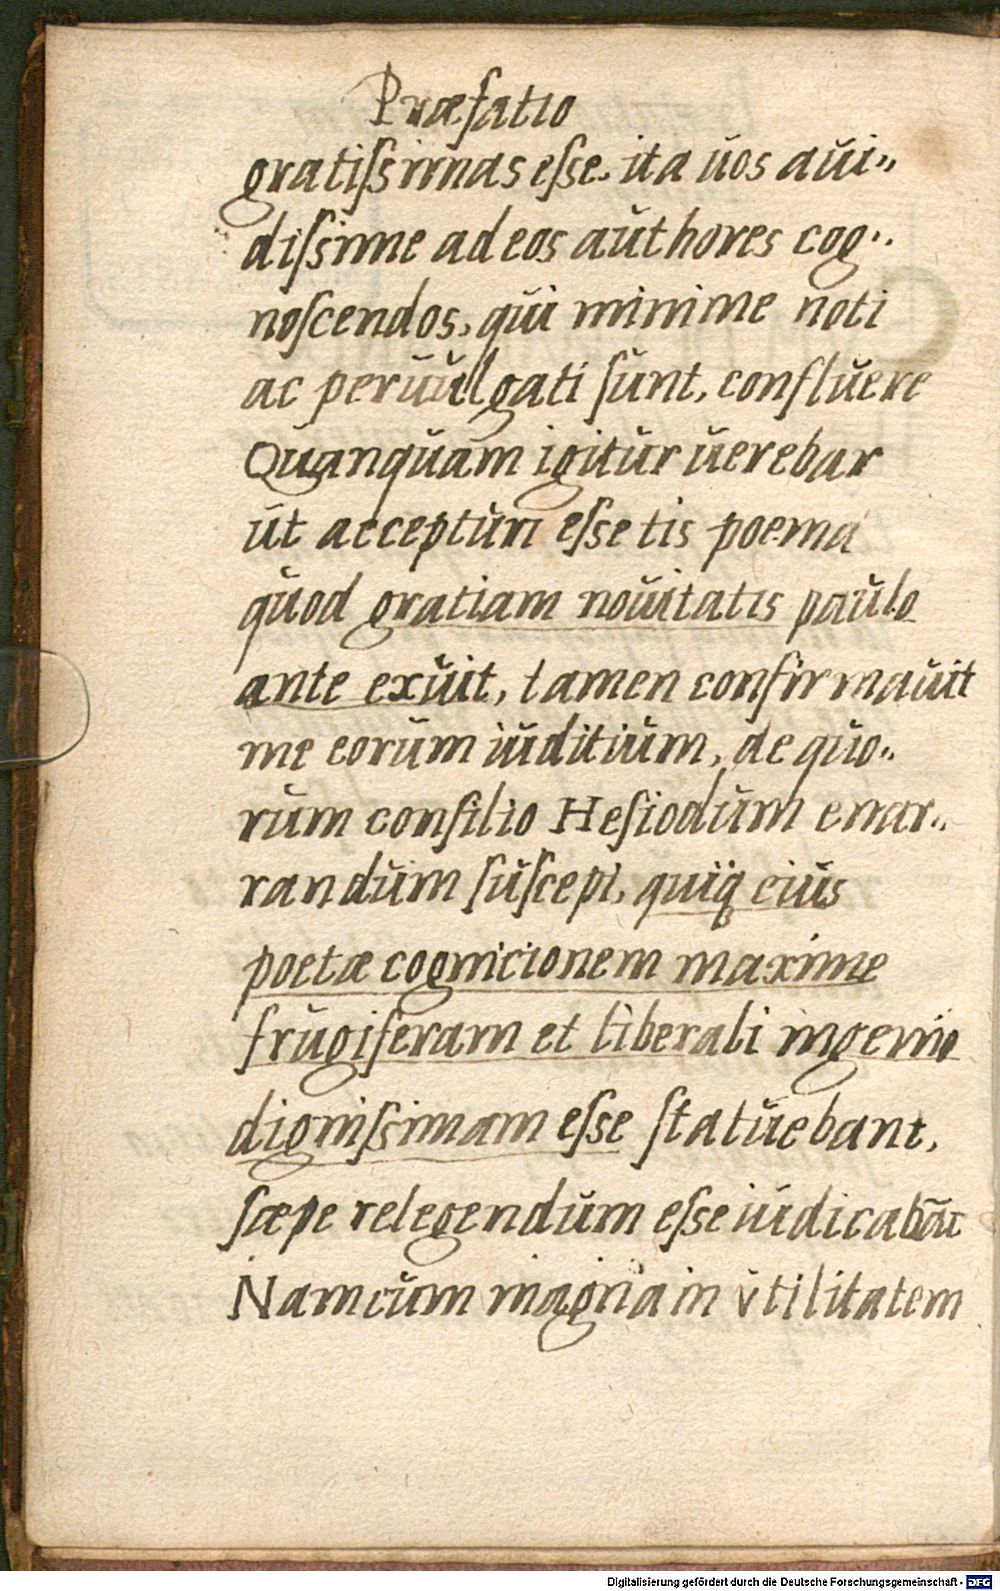 Præfatio
gratiſsimas eſse. ita uos aui⸗
diſsime ad eos authores cog⸗
noſcendos, qui minime noti
ac peruulgati ſunt, confluere
Quanquam igitur uerebar
ut acceptum eſsetis poema
quod gratiam nouitatis paulo
ante exuit, tamen confirmauit
me eorum iuditium, de quo⸗
rum conſilio Heſiodum enar⸗
randum ſuſcepi, quiq eius
poetæ cognicionem maxime
frugiferam et liberali ingenio
digniſsimam eſse ſtatuebant,
ſæpe relegendum eſse iudicabāt
Nam cum magna in vtilitatem
Digitalisierung gefördert durch die Deutsche Forschungsgemeinschaft - DFG